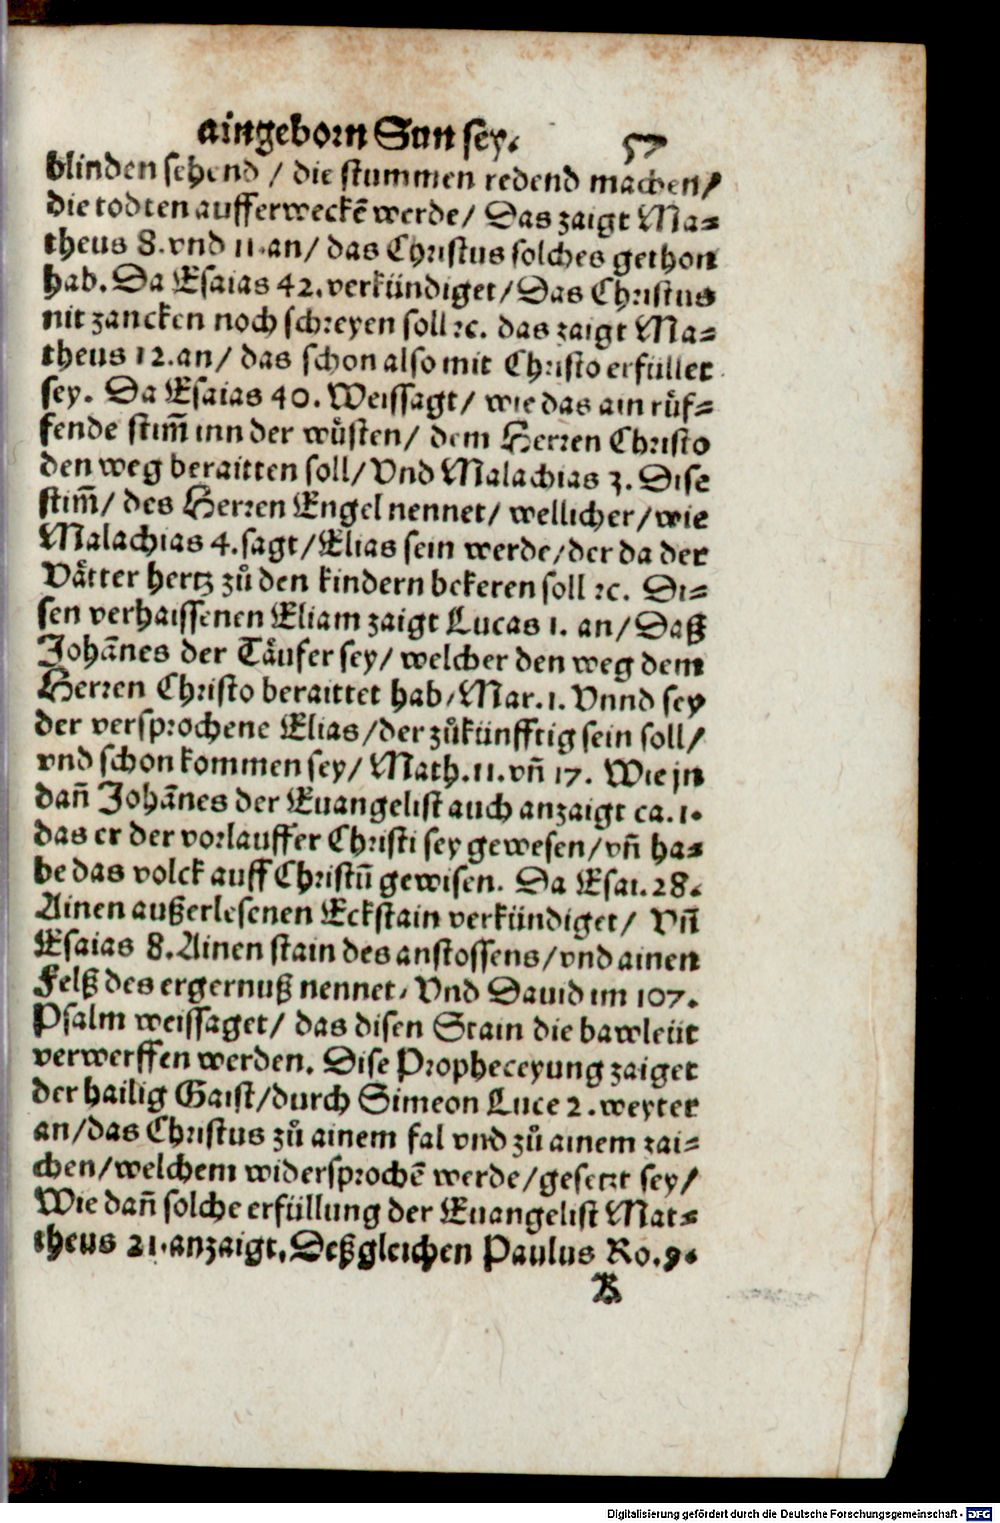 aingeborn Sun sey. 57
blinden sehend / die stummen redend machen/
die todten aufferweckē werde/ Das zaigt Ma-
theus 8. vnd 11. an/ das Christus solches gethon
hab. Da Esaias 42. verkündiget/ Das Christus
nit zancken noch schreyen soll ꝛc. das zaigt Ma-
theus 12. an/ das schon also mit Christo erfüllet
sey. Da Esaias 40. Weissagt/ wie das ain růf-
fende stim̄ inn der wůsten/ dem Herren Christo
den weg beraitten soll/ Vnd Malachias 3. Dise
stim̄/ des Herren Engel nennet/ wellicher/ wie
Malachias 4. sagt/ Elias sein werde/ der da der
Våtter hertz zů den kindern bekeren soll ꝛc. Di-
sen verhaissenen Eliam zaigt Lucas 1. an/ Daß
Johan̄es der Tåufer sey/ welcher den weg dem
Herren Christo beraittet hab/ Mar. 1. Vnnd sey
der versprochene Elias/ der zůkünfftig sein soll/
vnd schon kommen sey/ Math. 11. vn̄ 17. Wie jn
dan̄ Johan̄es der Euangelist auch anzaigt ca. 1.
das er der vorlauffer Christi sey gewesen/ vn̄ ha-
be das volck auff Christū gewisen. Da Esai. 28.
Ainen außerlesenen Eckstain verkündiget/ Vn̄
Esaias 8. Ainen stain des anstossens/ vnd ainen
Felß des ergernuß nennet/ Vnd Dauid im 107.
Psalm weissaget/ das disen Stain die bawleüt
verwerffen werden. Dise Propheceyung zaiget
der hailig Gaist/ durch Simeon Luce 2. weyter
an/ das Christus zů ainem fal vnd zů ainem zai-
chen/ welchem widersprochē werde/ gesetzt sey/
Wie dan̄ solche erfüllung der Euangelist Mat-
theus 21. anzaigt. Deßgleichen Paulus Ro. 9.
B
Digitalisierung gefördert durch die Deutsche Forschungsgemeinschaft - DFG